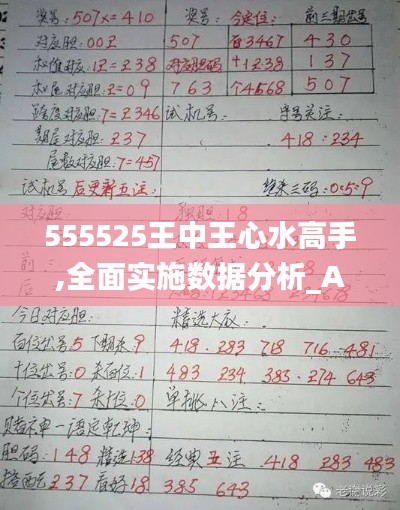 奖号:507x=410 奖号: 今定位: 前三期奖号
对应胆:00又 507 百3467 430
1又=238 对应胆码 十1238 137
对应胆:2=09 763 个4568 507
跨度对应胆:7=2346 试机号: 字号关注:
期尾对应胆:237 418:234
尾数对应胆:7=457
试机号后更新五注: 绝杀三码:0:5:9
555525王中王心水高手
,全面实施数据分析_A
今日对应胆: 精选大底:
百位奖号5下期杀9 418.283 718 716.481
十位奖号:0杀百位:1 483 234 383.274 643
个位奖号:7杀十位:0 单挑八注:
赌神单一语定乾坤:
胆码:148精选138 经典五注.418 283 483
237 看好18 385 643
老葵说彩